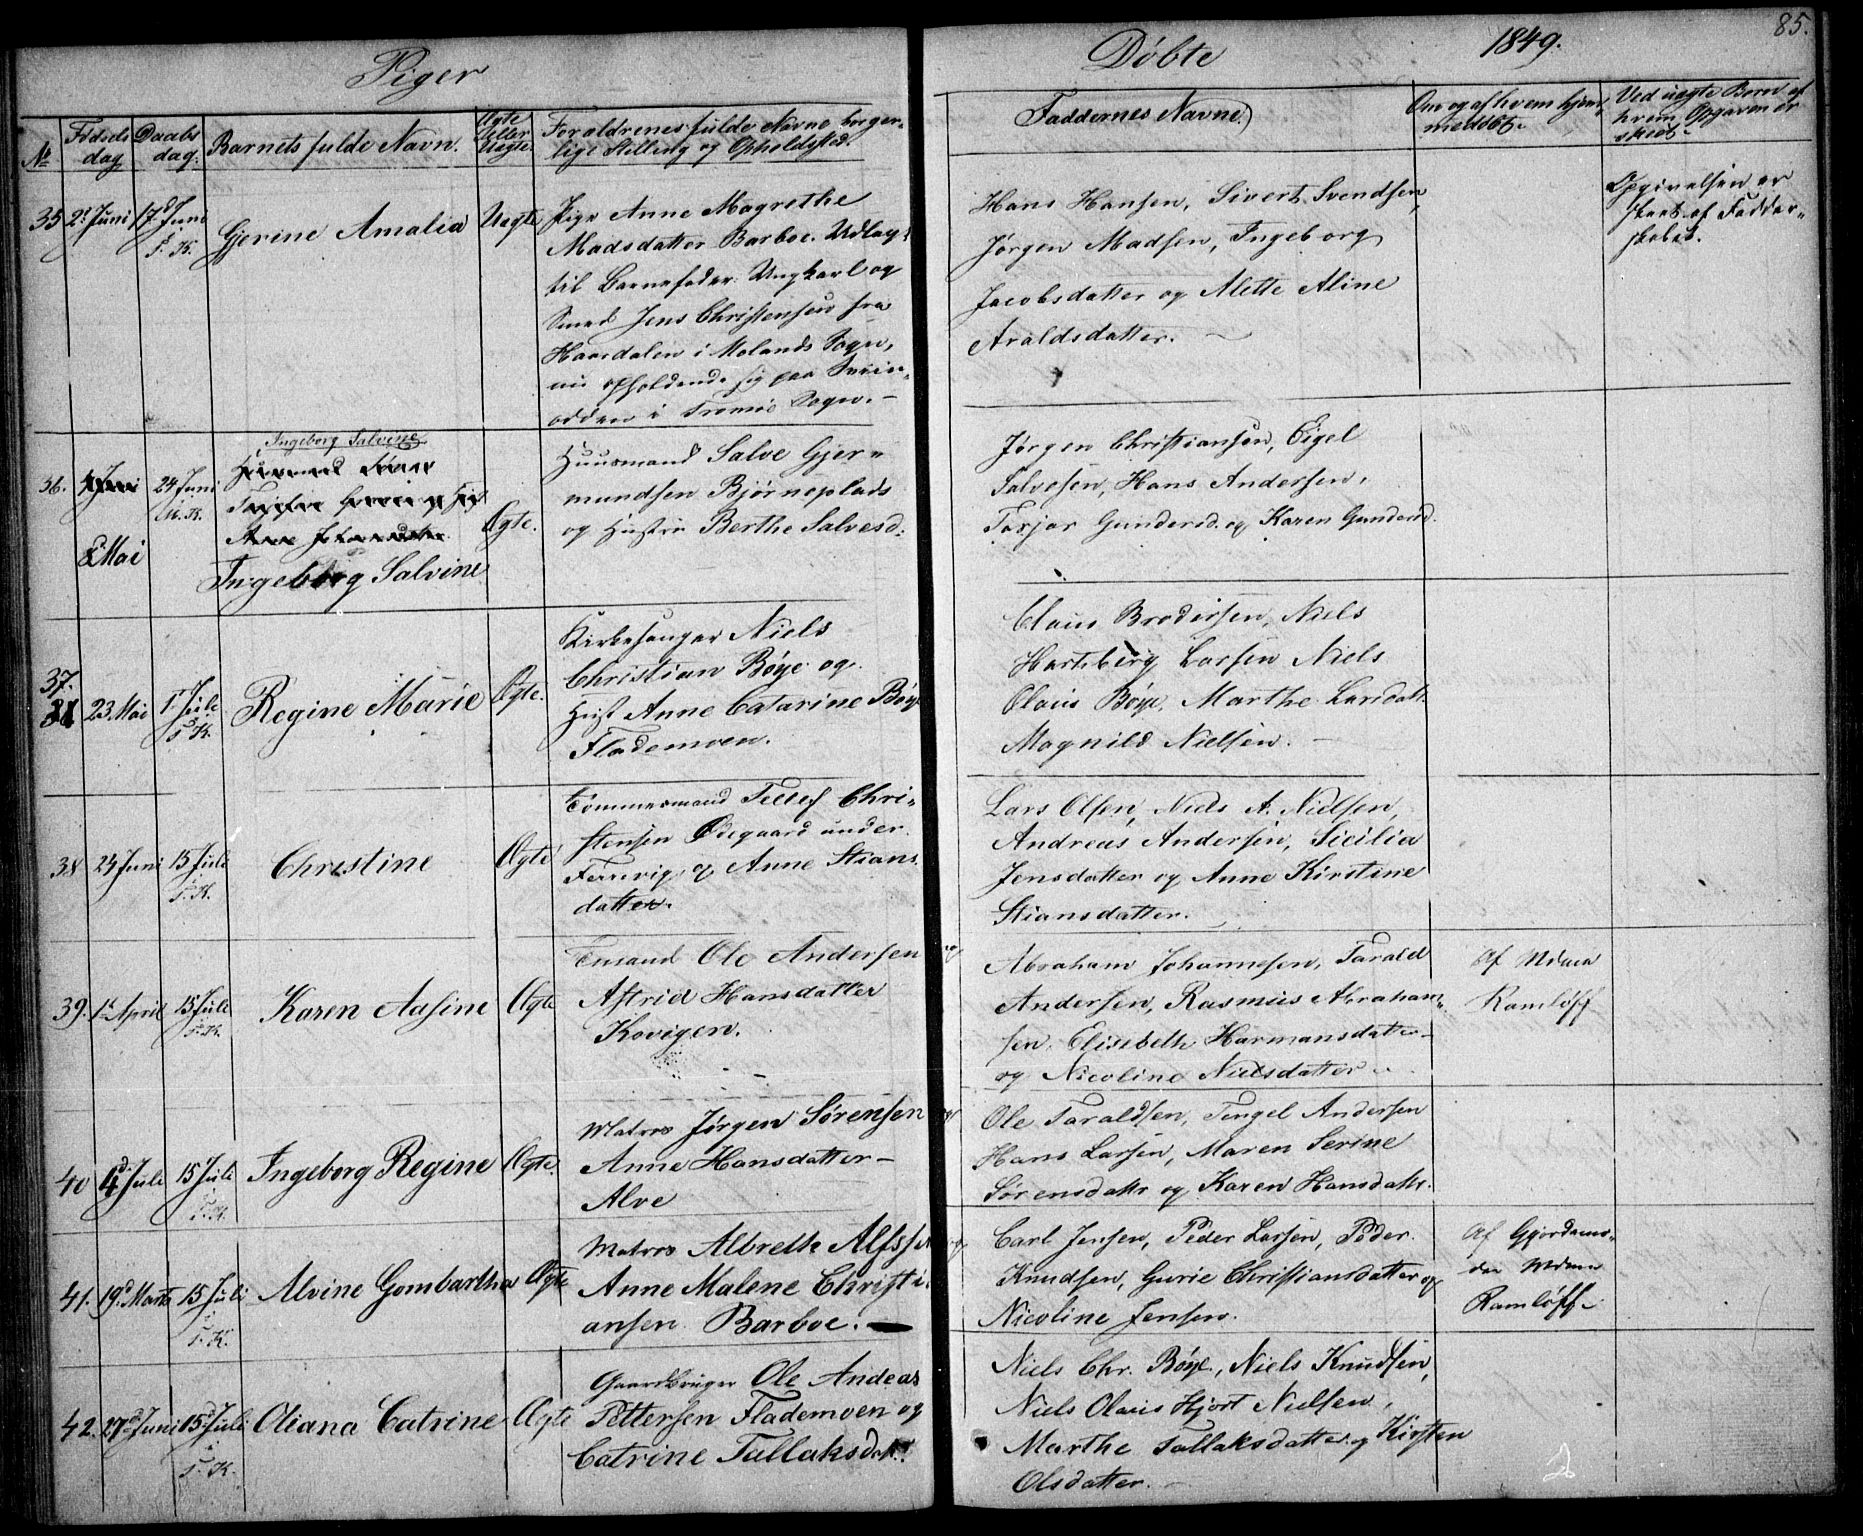 Piger
Døbte
1849.
85.
No
Fødsels
dag
Daabs
dag.
Barnets fulde Navn.
Ægte
eller
Uægte
Forældrenes fulde Navne borger-
lige Stilling og Opholdsted.
Faddernes Navne
Om og af hvem hjem
medøbt.
Ved uægte Børn af
hvem Opgaven er
skeet.
35
2 Juni
17d Juni
i
T. K.
Gjerine Amalia
Uægte
Pige Anne Magrethe
Madsdatter Barboe. Udlagt
til Barnefader: Ungkarl og
Smed Jens Christensen fra
i Molands Sogn,
nu opholdende sig paa
odden i Tromøe Sogn. -
Hans Hansen, Sivert Svendsen,
Jørgen Madsen, Ingeborg
Jacobsdatter og Alette Aline
Araldsdatter.
Opgivelsen er
skeet af Fadder-
skabet.
36.
8 Mai
24 Juni
i M. K.
Ingeborg Salvine
Ingeborg Salvine
Ægte.
Huusmand Salve Gjer-
mundsen Bjørneplads
og Hustru Berthe Salvesd:
Jørgen Christiansen, Eigel
Salvesen, Hans Andersen,
Taxjar Gundersd. og Karen Gundersd.
37.
23 Mai
1 Juli
i
T. K.
Regine Marie
Ægte.
Kirkesanger Niels
Christian Bøye og
Hust Anne Catarine Bøye
Flademoen.
Claus Brodersen, Niels
Hartsberg Larsen Niels
Olaus Bøye, Marthe Larsdatt.
Magnild Nielsen. -
38
24 Juni
15 Juli
i
T. K.
Christine
Ægte
Tømmermand Tellef Chri-
stensen Ødegaard under
Færvig og Anne Stians
datter.
Lars Olsen, Niels A. Nielsen,
Andreas Andersen, Sicilia
Jensdatter og Anne Kirstine
Stiansdatter.
39.
1 April
15 Juli
i
T. K.
Karen Aasine
Ægte
Ole Andersen og
Astrid Hansdatter
Kovigen.
Abraham Johannesen, Tarald
Andersen, Rasmus Abraham-
sen, Elisebeth Harmansdatter
og Nicoline Nielsdatter
Af Mdme
Ramløff
40
4d Juli
15 Juli
i
T. K.
Ingeborg Regine
Ægte.
Matros Jørgen Sørensen og
Anne Hansdatter -
Alve
Ole Taraldsen, Tengel Andersen
Hans Larsen, Maren Serine
Sørensdatter og Karen Hansdatter.
41.
19d Marts
15 Juli
i
T. K.
Alvine Gombartha
Ægte
Matros Albreth Alfssen og
Anne Malene Christi-
ansen Barboe.
Carl Jensen, Peder Larsen, Peder
Knudsen, Gurie Christiansdatter og
Nicoline Jensen.
Af Gjordemo-
der Mdme
Ramløff
42.
27d Juni
15d Juli
i
T. K.
Oliana Catrine
Ægte
Gaardbruger Ole Andeas
Pettersen Flademoen og
Catrine Tallaksdatt.
Niels Chr. Bøye, Niels Knudsen,
Niels Olaus Hjort Nielsen,
Marthe Tallaksdatter og Kirsten
Olsdatter. -